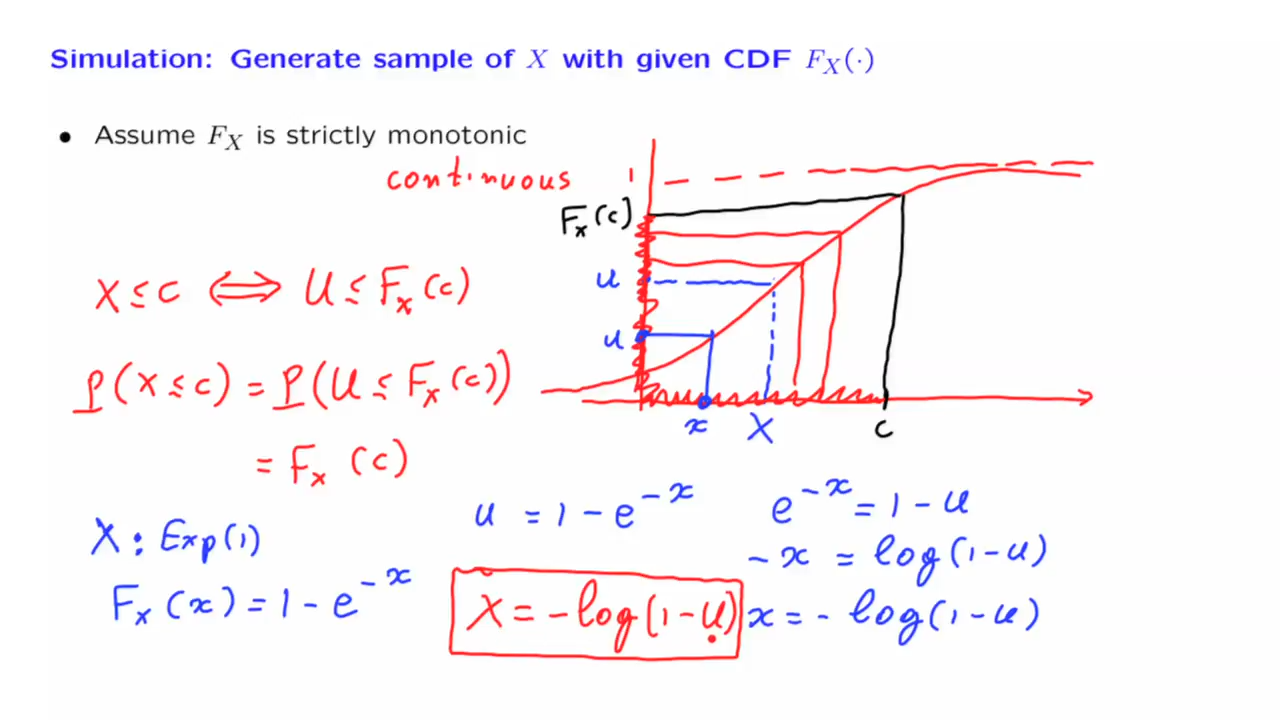 Simulation: Generate sample of X with given CDF F_X(·)
• Assume F_X is strictly monotonic
continuous
1
F_x(c)
u
u
x
X
c
X ≤ c ⟺ U ≤ F_x(c)
P(X ≤ c) = P(U ≤ F_x(c))
= F_x(c)
X : Exp(1)
F_x(x) = 1 - e^{-x}
u = 1 - e^{-x}
X = -log(1-U)
e^{-x} = 1 - u
-x = log(1-u)
x = -log(1-u)